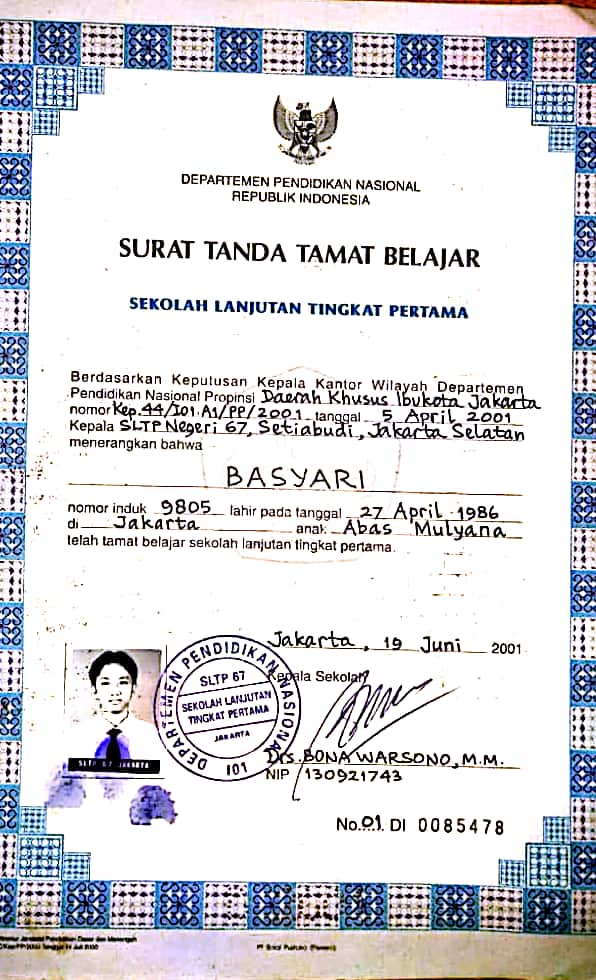 DEPARTEMEN PENDIDIKAN NASIONAL
REPUBLIK INDONESIA
SURAT TANDA TAMAT BELAJAR
SEKOLAH LANJUTAN TINGKAT PERTAMA
Berdasarkan Keputusan Kepala Kantor Wilayah Departemen
Pendidikan Nasional Propinsi Daerah Khusus Ibukota Jakarta
nomor Kep.44/I01.A1/PP/2001 tanggal 5 April 2001
Kepala SLTP Negeri 67, Setiabudi, Jakarta Selatan
menerangkan bahwa
BASYARI
nomor induk 9805 lahir pada tanggal 27 April 1986
di Jakarta anak Abas Mulyana
telah tamat belajar sekolah lanjutan tingkat pertama.
Jakarta, 19 Juni 2001
Kepala Sekolah
DEPARTEMEN PENDIDIKAN NASIONAL
SLTP 67
SEKOLAH LANJUTAN
TINGKAT PERTAMA
JAKARTA
I01
SLTP 67 JAKARTA
Drs. BONA WARSONO, M.M.
NIP 130921743
No.01. DI 0085478